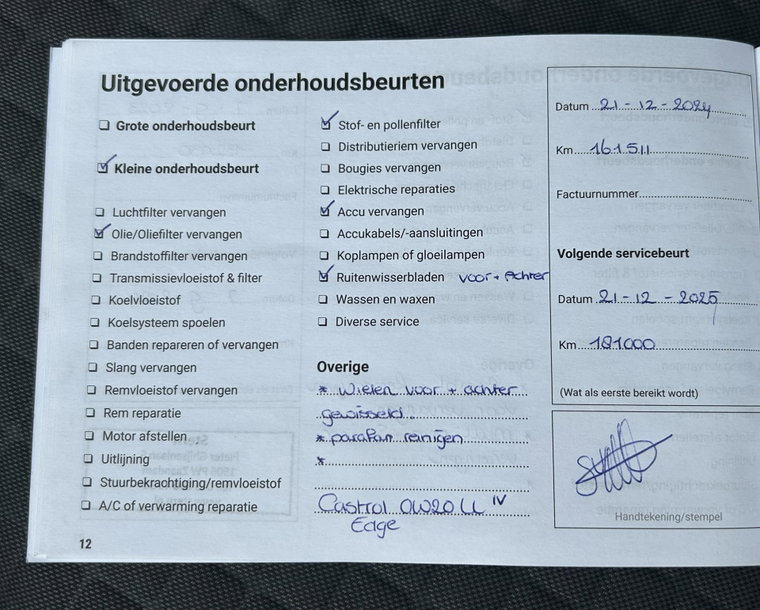 Uitgevoerde onderhoudsbeurten
Grote onderhoudsbeurt
Kleine onderhoudsbeurt
Luchtfilter vervangen
Olie/Oliefilter vervangen
Brandstoffilter vervangen
Transmissievloeistof & filter
Koelvloeistof
Koelsysteem spoelen
Banden repareren of vervangen
Slang vervangen
Remvloeistof vervangen
Rem reparatie
Motor afstellen
Uitlijning
Stuurbekrachtiging/remvloeistof
A/C of verwarming reparatie
12
Stof- en pollenfilter
Distributieriem vervangen
Bougies vervangen
Elektrische reparaties
Accu vervangen
Accukabels/-aansluitingen
Koplampen of gloeilampen
Ruitenwisserbladen voor + Achter
Wassen en waxen
Diverse service
Overige
* Wielen voor + achter
gewisseld
* parafan reinigen
*
Castrol 0W20 LL IV
Edge
Datum 21-12-2024
Km 161.511
Factuurnummer
Volgende servicebeurt
Datum 21-12-2025
Km 181000
(Wat als eerste bereikt wordt)
Handtekening/stempel